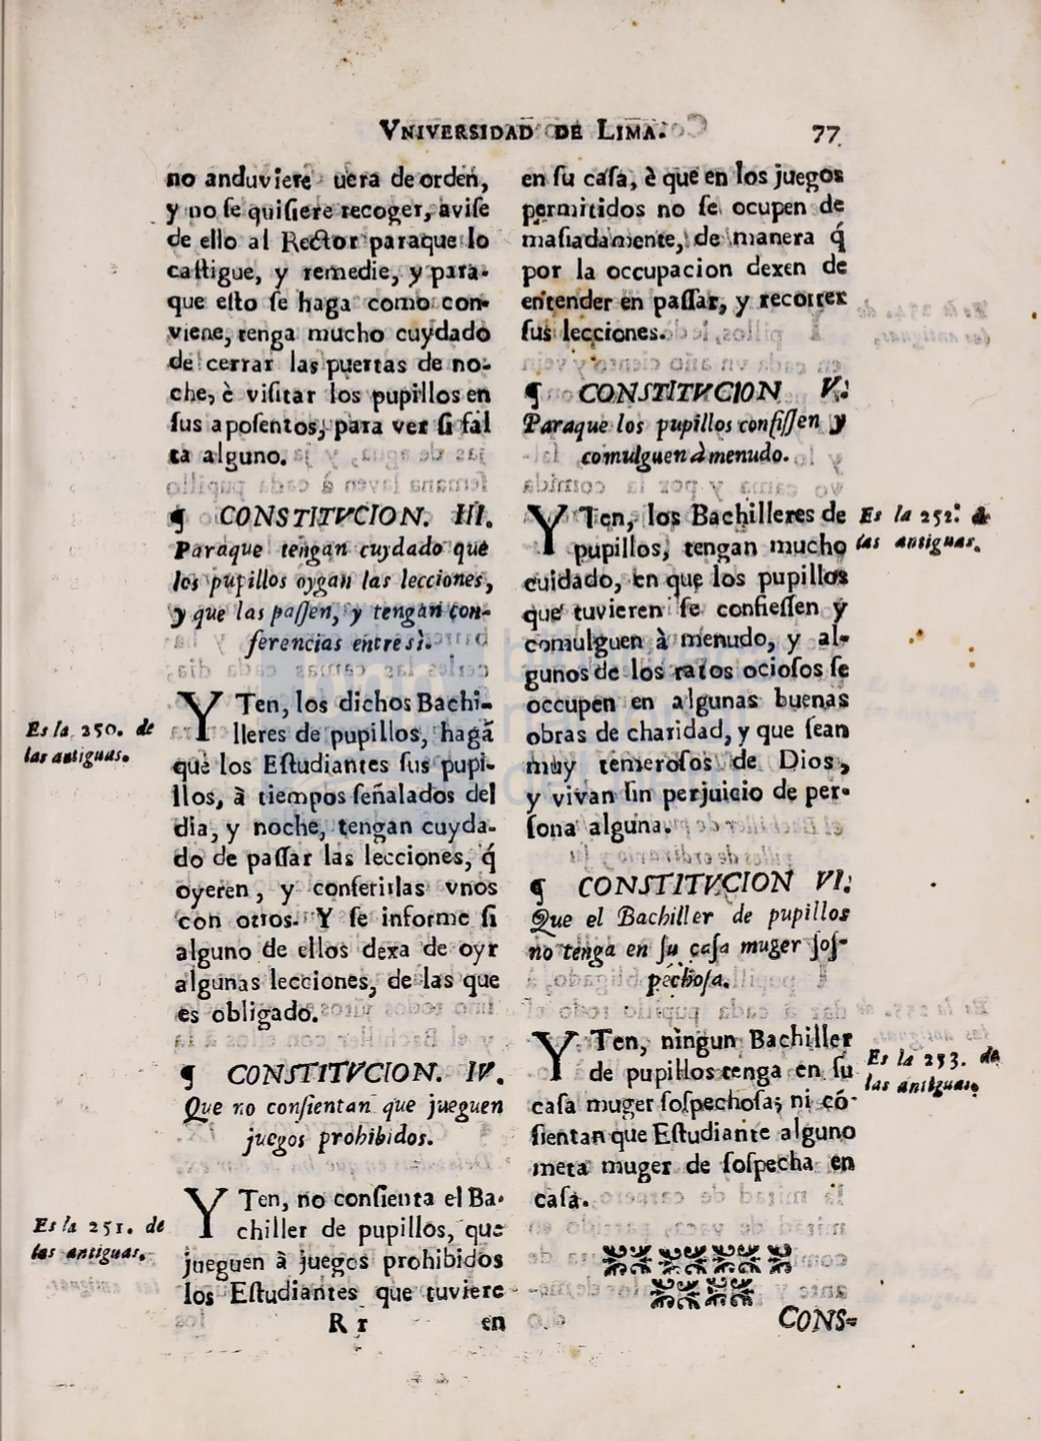 VNIVERSIDAD DE LIMA. 77
no anduviere uera de orden,
y no se quisiere recoger, avise
de ello al Rector paraque lo
castigue, y remedie, y para-
que esto se haga como con-
viene, tenga mucho cuydado
de cerrar las puertas de no-
che, è visitar los pupillos en
sus aposentos, para ver si fal
ta alguno.
¶ CONSTITVCION. III.
Paraque tengan cuydado que
los pupillos oygan las lecciones,
y que las passen, y tengan con-
ferencias entre sì.
Es la 250. de
las antiguas.
YTen, los dichos Bachi-
lleres de pupillos, hagã
que los Estudiantes sus pupi-
llos, à tiempos señalados del
dia, y noche, tengan cuyda-
do de passar las lecciones, q̃
oyeren, y conferirlas vnos
con otros. Y se informe si
alguno de ellos dexa de oyr
algunas lecciones, de las que
es obligado.
¶ CONSTITVCION. IV.
Que no consientan que jueguen
juegos prohibidos.
Es la 251. de
las antiguas.
YTen, no consienta el Ba-
chiller de pupillos, que
jueguen à juegos prohibidos
los Estudiantes que tuviere
Rr en
en su casa, è que en los juegos
permitidos no se ocupen de
masiadamente, de manera q̃
por la occupacion dexen de
entender en passar, y recorrer
sus lecciones.
¶ CONSTITVCION V.
Paraque los pupillos confiessen y
comulguen à menudo.
YTen, los Bachilleres de
pupillos, tengan mucho
cuidado, en que los pupillos
que tuvieren se confiessen y
comulguen à menudo, y al-
gunos de los ratos ociosos se
occupen en algunas buenas
obras de charidad, y que sean
muy temerosos de Dios,
y vivan sin perjuicio de per-
sona alguna.
Es la 252. de
las antiguas.
¶ CONSTITVCION VI.
Que el Bachiller de pupillos
no tenga en su casa muger sos-
pechosa.
YTen, ningun Bachiller
de pupillos tenga en su
casa muger sospechosa; ni cõ-
sientan que Estudiante alguno
meta muger de sospecha en
casa.
Es la 253. de
las antiguas.
CONS-